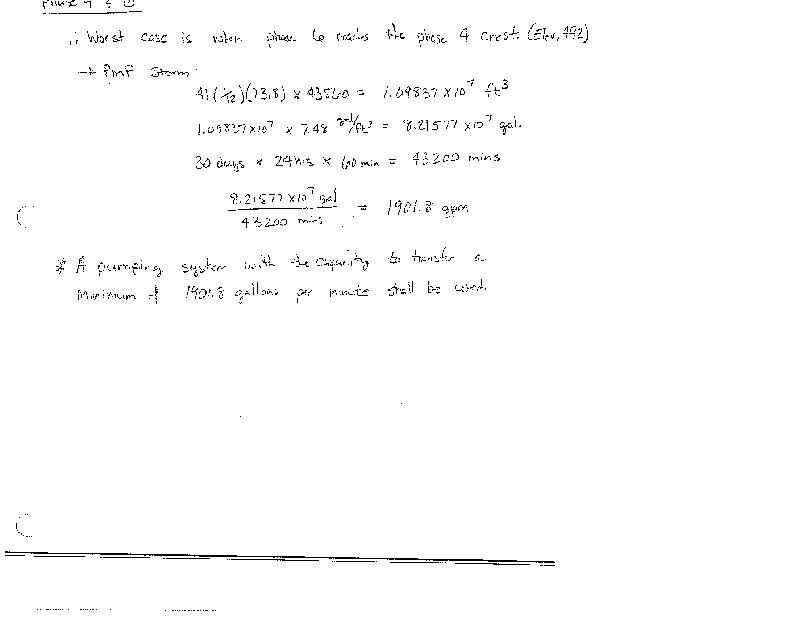 Phase 4 & 6
∴ Worst case is when phase 6 reaches the phase 4 crest (Elev. 492)
→ PMF Storm
41(1/12)(73.8) x 43560 = 1.09837 x 10^7 ft^3
1.09837x10^7 x 7.48 gal/ft^3 = 8.21577 x10^7 gal.
30 days x 24 hrs x 60 min = 43200 mins
8.21577 x10^7 gal
= 1901.8 gpm
43200 mins
* A pumping system with the capacity to transfer a
Minimum of 1901.8 gallons per minute shall be used.